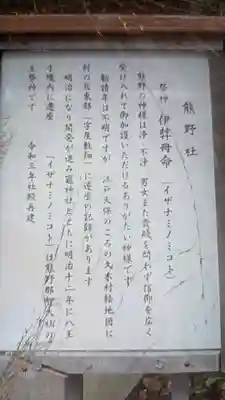 熊野社
祭神 伊弉冉命 「イザナミノミコト」
熊野の神様は浄・不浄、男女また貴賤を問わず信仰を広く
受け入れて御加護いただけるありがたい神様です
勧請年は不明ですが 江戸天保のころの久本村絵地図に
村の辰東部「字屋敷畑」に遷座の記録があります
明治になり開発が進み龍神社とともに明治十二年に八王
子境内に遷座 「イザナミノミコト」は熊野那智大社の
主祭神です
令和三年社殿再建